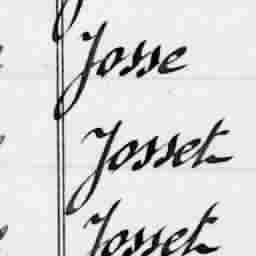 Josse
Josset
Josset